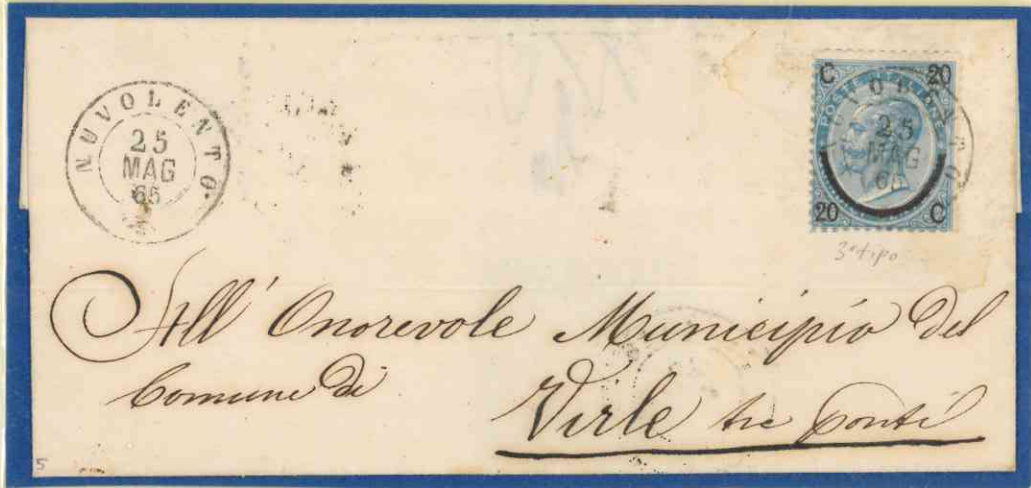 NUVOLENTO
25
MAG
65
C 20
POSTE ITALIANE
25
MAG
20 C
3° tipo
All' Onorevole Municipio del
Comune di
Virle tre ponti
5